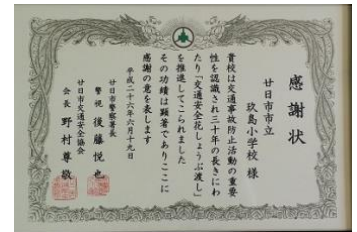 感謝状
廿日市市立
玖島小学校 様
貴校は交通事故防止活動の重要
性を認識され三十年の長きにわ
たり「交通安全花しょうぶ渡し」
を推進してこられました
その功績は顕著でありここに
感謝の意を表します
平成二十六年六月十九日
廿日市警察署長
警視 後藤悦也
廿日市交通安全協会
会長 野村尊敬